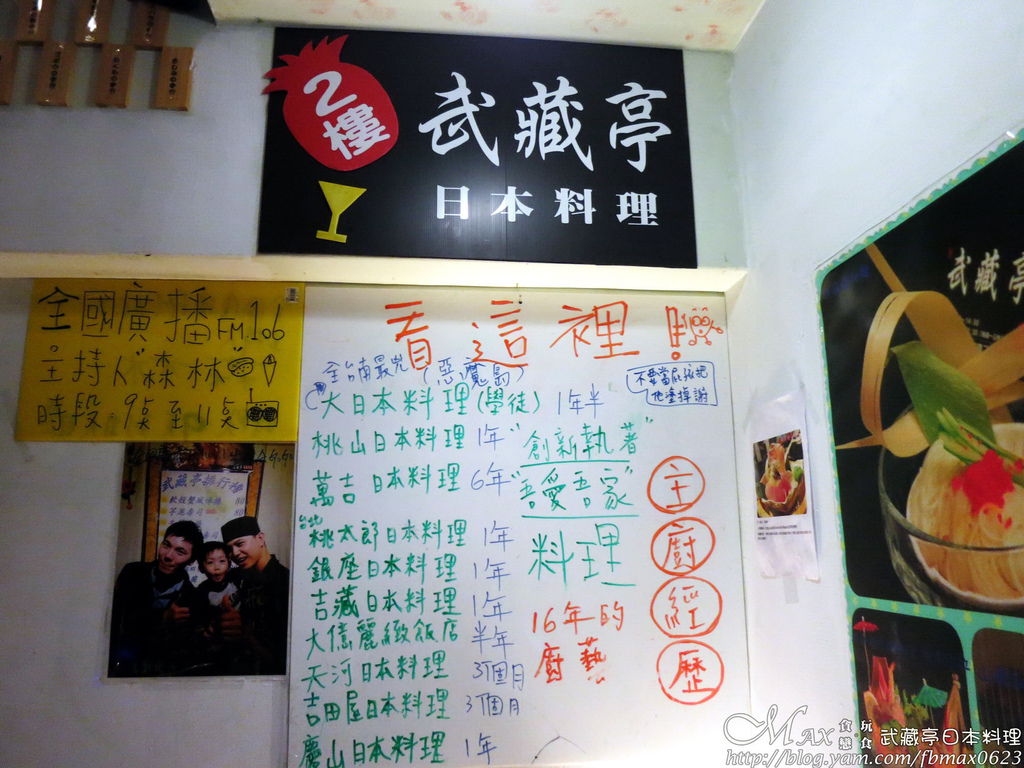 2樓
武藏亭
日本料理
全國廣播FM.106
主持人"森林"
時段.9點至11點
看這裡!
全台南最兇(惡魔島)
不要當屁孩把
他塗掉謝
(大日本料理(學徒) 1年半
桃山日本料理 1年
萬吉日本料理 6年
台北桃太郎日本料理 1年
銀座日本料理 1年
吉藏日本料理 1年
大億麗緻飯店 半年
天河日本料理 3個月
吉田屋日本料理 3個月
慶山日本料理 1年
"創新執著"
"吾愛吾家"
料理
16年的
廚藝
主
廚
經
歷
武藏亭排行榜
芋泥壽司
武藏亭
Max 食戀玩食 武藏亭日本料理
http://blog.yam.com/fbmax0623